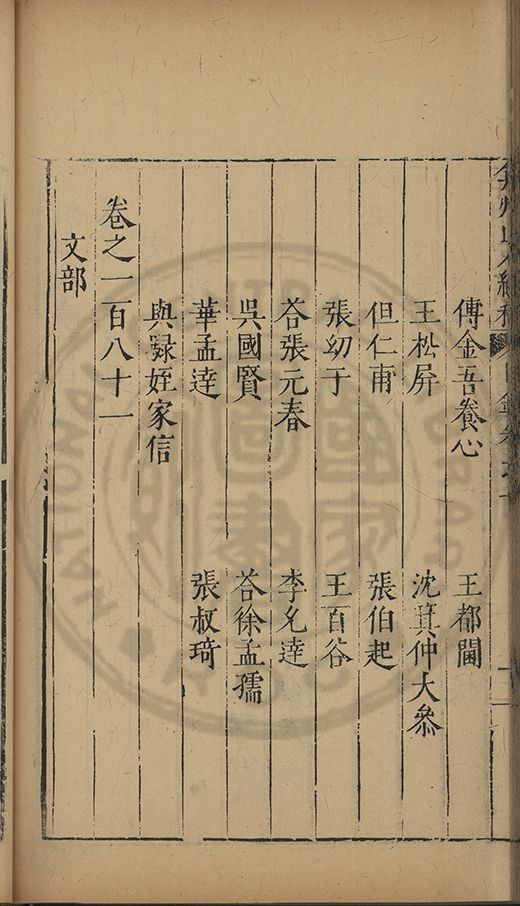 弇州山人續稿
傅金吾養心 王都閫
王松屏 沈箕仲大叅
但仁甫 張伯起
張幼于 王百谷
荅張元春 李允達
吳國賢 荅徐孟孺
華孟達 張叔琦
與姪家信
卷之一百八十一
文部